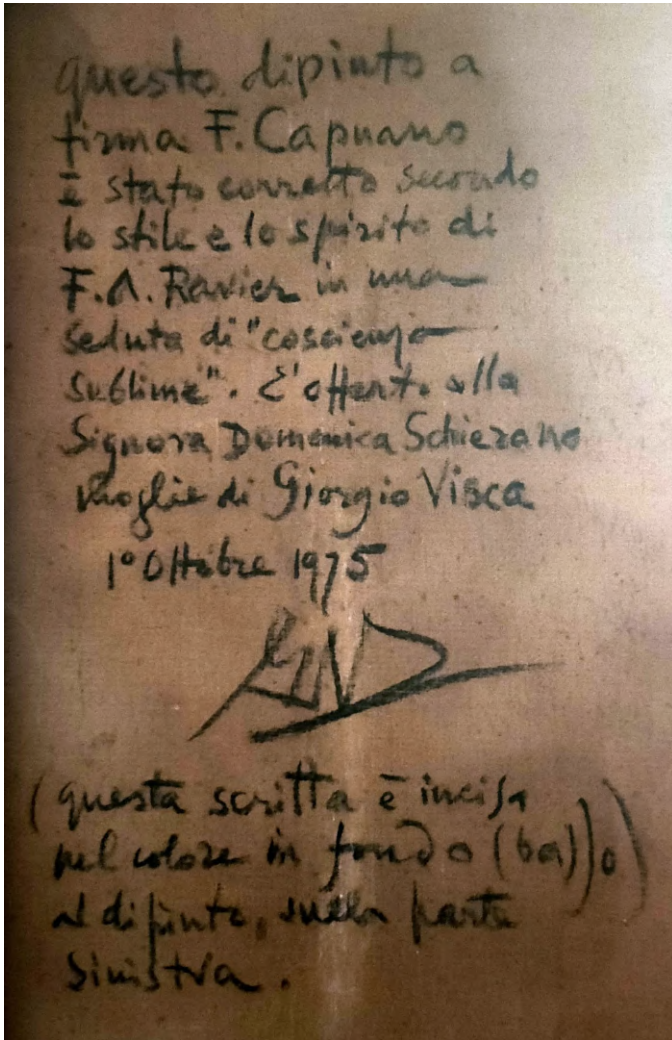 questo dipinto a
firma F. Capuano
è stato corretto secondo
lo stile e lo spirito di
F. A. Ravier in una
seduta di "coscienza
sublime". E' offerto alla
Signora Domenica Schierano
moglie di Giorgio Visca
1° Ottobre 1975
(questa scritta è incisa
nel colore in fondo (basso)
al dipinto, sulla parte
sinistra.